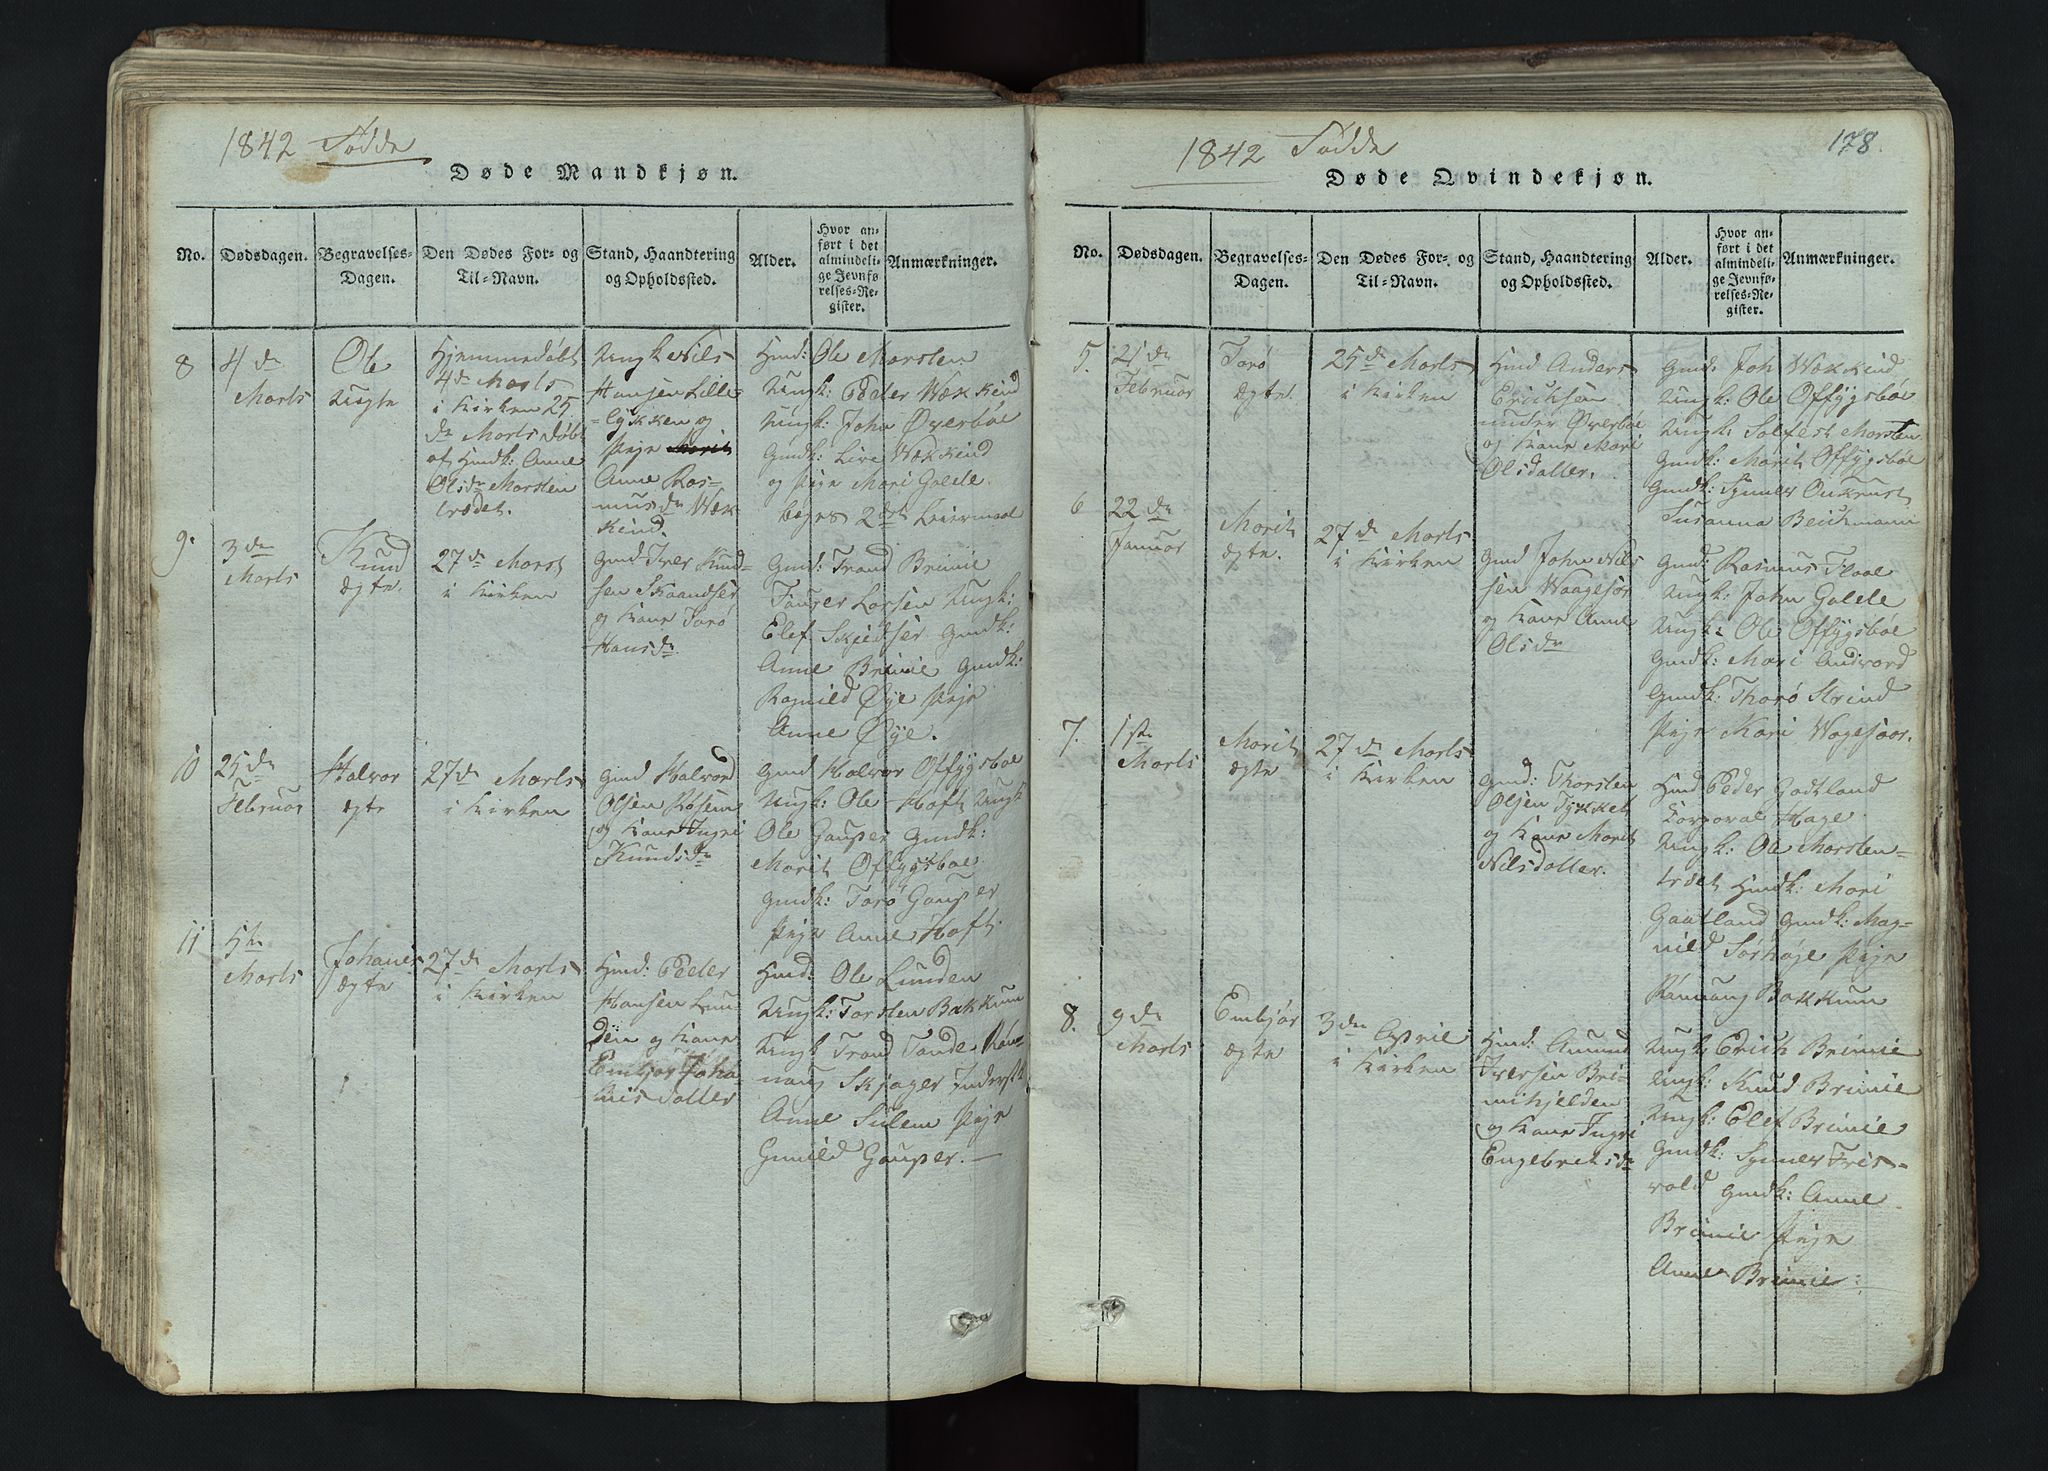 1842 Fødde
Døde Mandkjøn.
No.
Dødsdagen.
Begravelses-
Dagen.
Den Dødes For- og
Til-Navn.
Stand, Haandtering
og Opholdssted.
Alder.
Hvor an-
ført i det
almindeli-
ge Jevnfø-
relses-Re-
gister.
Anmærkninger.
8
4 de
Marts
Ole
Uægte
Hjemmedøbt
4de Marts
i Kirken 25
de Marts døbt
af Gmdk: Anne
Olsdr Marsten
trædet.
Ungk Nils
Hansen Lille-
løkken og
Pige Marit
Anne Ras-
musdr Wæk
kind.
Hmd: Ole Marsten
Ungk: Peder Wækkind
Ungk: John Øverbøe
Gmdk: Live Wækkind
og Pige Mari Galde.
begres 2det Leiermaal
9.
3 de
Marts
Knud
ægte.
27de Marst
i Kirken
Gmd Iver Knud-
sen Skaandser
og Kone Torø
Hansdr.
Gmd: Trond Brimie
Fouser Larsen Ungk:
Elef Skjedser Gmdk:
Anne Brimie Gmdk:
Ragnild Øye Pige
Anne Øye.
10
25de
Februar
Halvor
ægte
27de Marts
i Kirken
Gmd Halvord
Olsen Rosum
og Kone Ingri
Knudsdr
Gmd Halvor Offygsboe
Ungk: Ole Hoft Ungk
Ole Gauper Gmdk:
Marit Offygsboe
Gmdk: Torø Gauper
Pige Anne Hoft.
11
5te
Marts
Johanes
ægte
27de Marts
i Kirken
Hmd: Peder
Hansen Lun
den og Kone
Embjør Joha
nisdatter
Hmd: Ole Lunden
Ungk: Torsten Bakkum
Ungk Trond Tande Røn-
naug Skjager
Anne Sulem Pige
Gunild Gauper. —
1842 Fødde
178.
Døde Qvindekjøn.
No.
Dødsdagen.
Begravelses-
Dagen.
Den Dødes For- og
Til-Navn.
Stand, Haandtering
og Opholdssted.
Alder.
Hvor an-
ført i det
almindeli-
ge Jevnfø-
relses-Re-
gister.
Anmærkninger.
5.
21 de
Februar
Torø
ægte.
25de Marts
i Kirken
Hmd Anders
Erichsen
under Øverbøe
og Kone Mari
Olsdatter.
Gmd: Joh Wækkind
Ungk: Ole Offygsbøe
Ungk: Solfest Marsten
Gmdk: Marit Offygsbøe
Gmdk: Synnev Aukrust
Susanna Beichmann
6
22 de
Januar
Marit
ægte.
27de Marts
i Kirken
Gmd John Nils
sen Waagesør
og Kone Anne
Olsdr
Gmd: Rasmus Flaae
Ungk: John Galde
Ungk: Ole Offygsbøe
Gmdk: Mari Andvord
Gmdk: Thorø Strind
Pige Kari Wogesaar.
7.
1ste
Marts
Marit
ægte
27de Marts
i Kirken
Gmd: Thorsten
Olsen Tykket
og Kone Marit
Nilsdatter.
Hmd Peder Gaatland
Corporal Hage
Ungk: Ole Marsten-
træet Hmdk: Mari
Gaatland Gmdk: Mag-
nild Sørhøje Pige
Rønnaug Bakkum
8.
9de
Marts
Embjør
ægte
3de April
i Kirken
Hmd: Amund
Iversen Bri-
mihjelden
og Kone Ingri
Engebretsdr
Ungk Erich Brimie
Ungk: Knud Brimie
Ungk: Elef Brimie
Gmdk: Synnev Fris-
vold Gmdk: Anne
Brimie Pige
Anne Brimie.